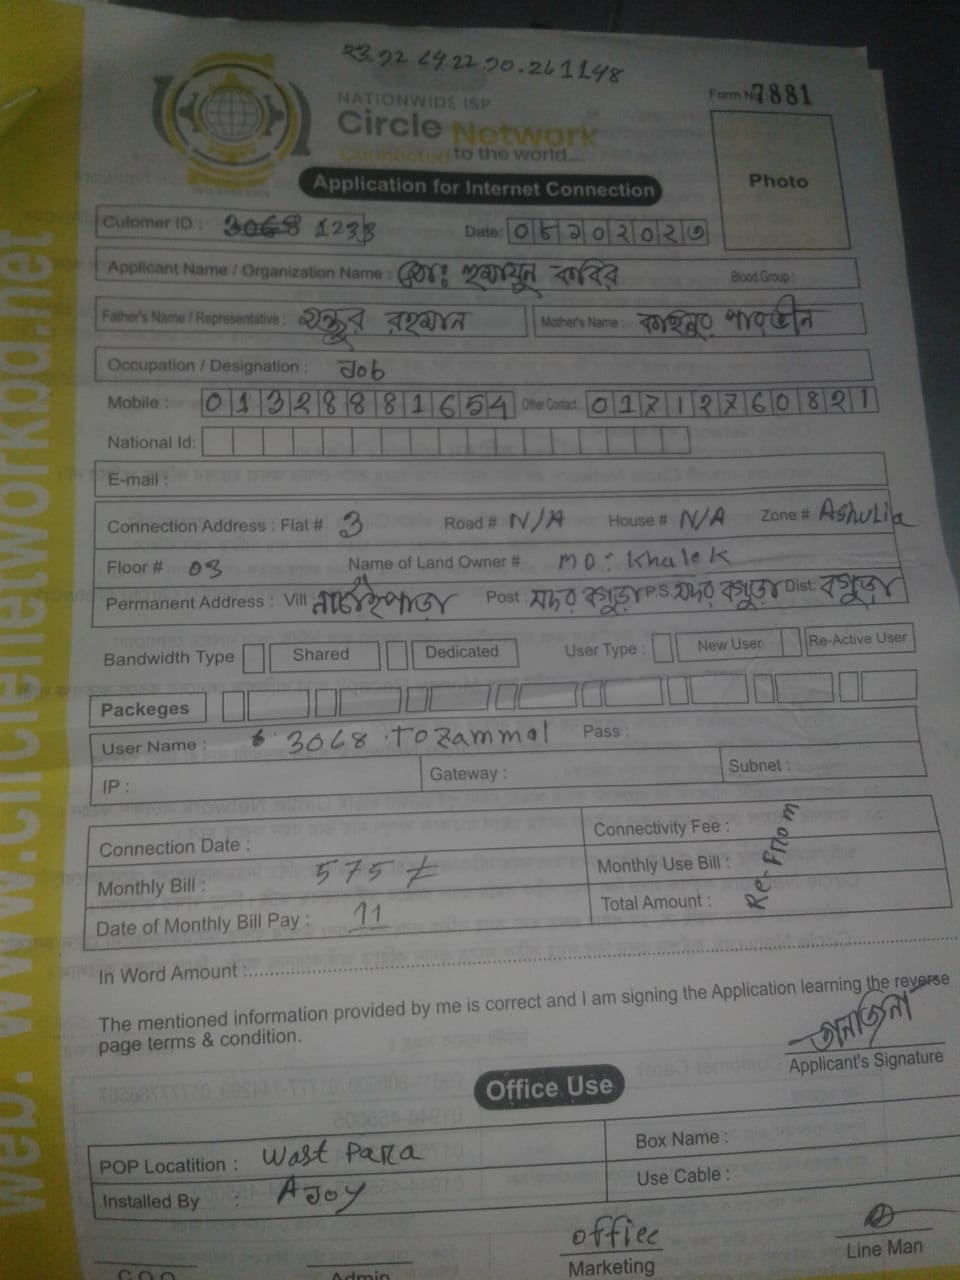 NATIONWIDE ISP
Circle Network
Connected to the world....
Form No 7881
Photo
Application for Internet Connection
Cutomer ID : 1233
Date: ০৮১০২০২৩
Applicant Name / Organization Name : মোঃ হুমায়ুন কবির Blood Group :
Father's Name / Representative : রহমান Mother's Name : পারভীন
Occupation / Designation : Job
Mobile : 01328881654 Other Contact : 01712760821
National Id:
E-mail :
Connection Address : Flat # 3 Road # N/A House # N/A Zone # Ashulia
Floor # 03 Name of Land Owner # MD: Khalek
Permanent Address : Vill : Post : সদর বগুড়া P.S. সদর বগুড়া Dist: বগুড়া
Bandwidth Type Shared Dedicated User Type : New User Re-Active User
Packeges
User Name : 3068.Tozammal Pass :
IP : Gateway : Subnet :
Connection Date : Connectivity Fee :
Monthly Bill : 575/= Monthly Use Bill :
Date of Monthly Bill Pay : 11 Total Amount :
Re-From
In Word Amount :
The mentioned information provided by me is correct and I am signing the Application learning the reverse
page terms & condition.
Applicant's Signature
Office Use
POP Locatition : Wast Para Box Name :
Installed By : AJoy Use Cable :
office
Marketing
Line Man
Admin
web: www.circlenetworkbd.net